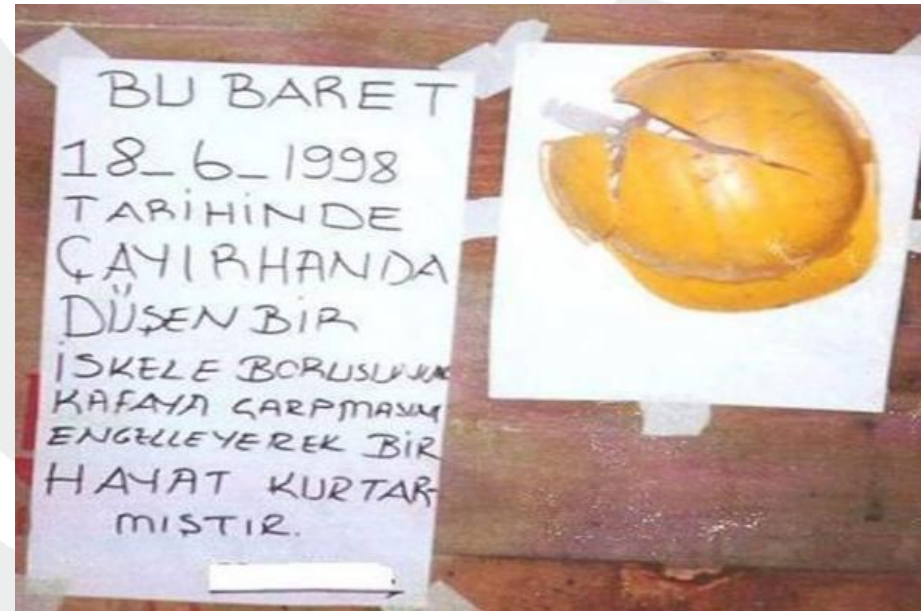 BU BARET
18_6_1998
TARİHİNDE
ÇAYIRHANDA
DÜŞEN BİR
İSKELE BORUSUNUN
KAFAYA ÇARPMASINI
ENGELLEYEREK BİR
HAYAT KURTAR-
MIŞTIR.